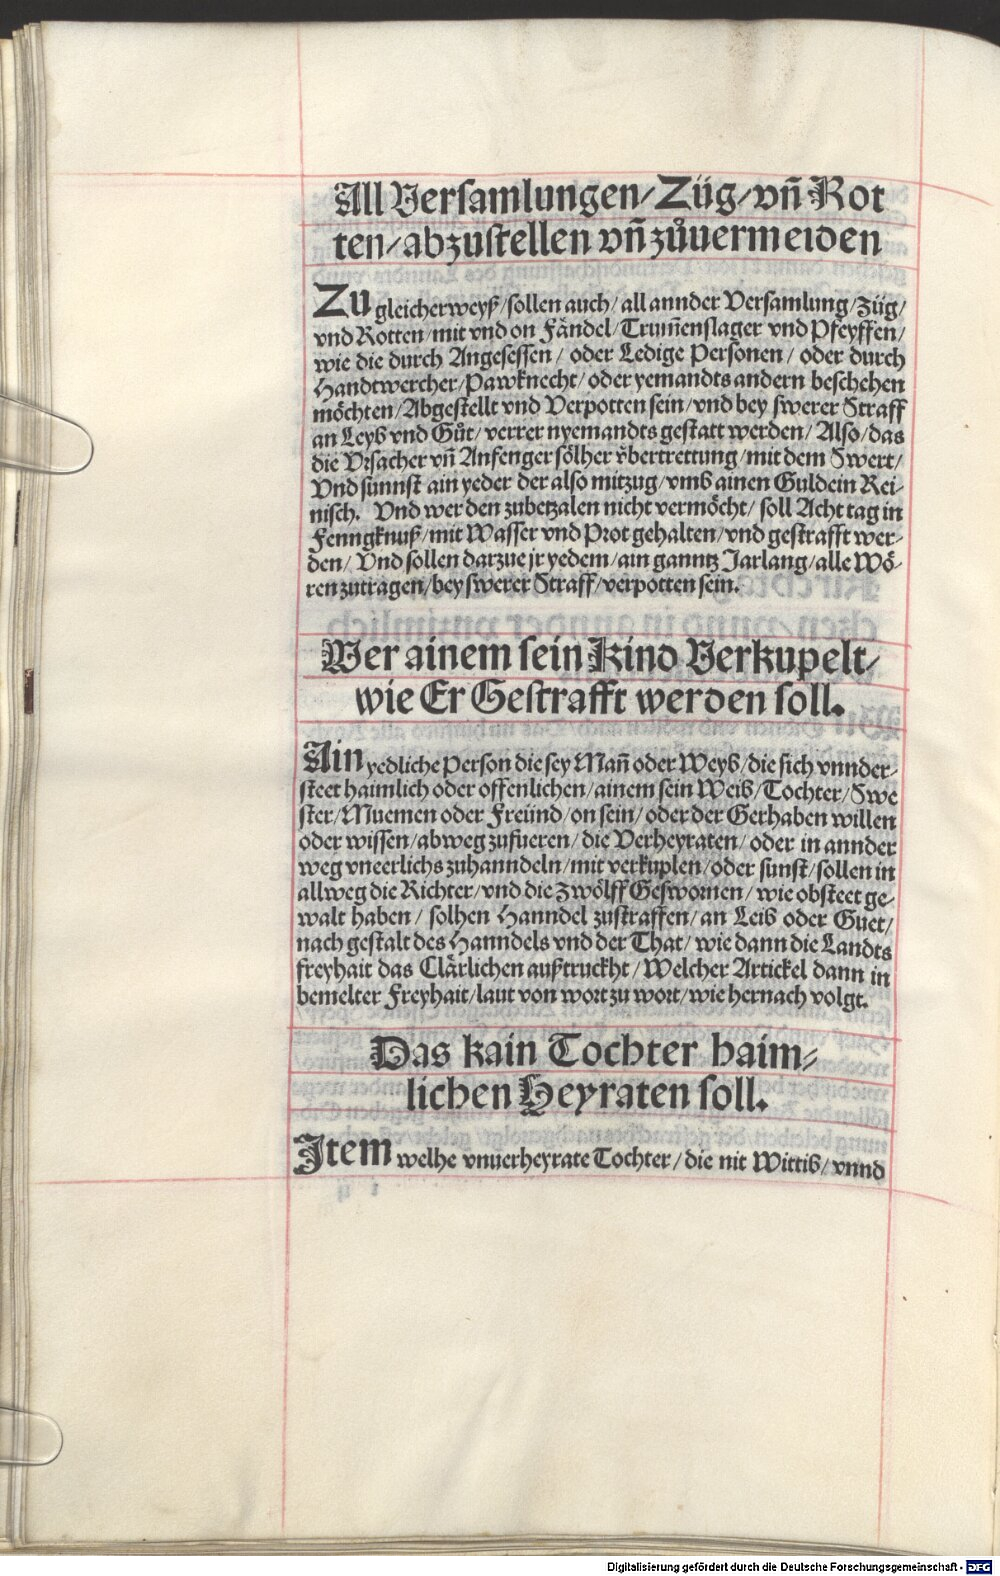 All Versamlungen/Züg/vñ Rot
ten/abzustellen vñ zůuermeiden
Zu gleicherweyß/sollen auch/all annder Versamlung/Züg/
vnd Rotten/mit vnd on Fändel/Trum̃enslager vnd Pfeyffen/
wie die durch Angesessen/oder Ledige Personen/oder durch
Handtwercher/Pawknecht/oder yemandts andern beschehen
möchten/Abgestellt vnd Verpotten sein/vnd bey swerer Straff
an Leyb vnd Gůt/verrer nyemandts gestatt werden/Also/das
die Vrsacher vñ Anfenger sölher v̈bertrettung/mit dem Swert/
Vnd sunnst ain yeder der also mitzug/vmb ainen Guldein Rei-
nisch. Vnd wer den zubetzalen nicht vermöcht/soll Acht tag in
Fenngknuß/mit Wasser vnd Prot gehalten/vnd gestrafft wer-
den/Vnd sollen darzue jr yedem/ain ganntz Jarlang/alle Wö-
ren zutragen/bey swerer Straff/verpotten sein.
Wer ainem sein Kind Verkupelt/
wie Er Gestrafft werden soll.
Ain yedliche Person die sey Mañ oder Weyb/die sich vnnder-
steet haimlich oder offenlichen/ainem sein Weib/Tochter/Swe
ster/Muemen oder Freünd/on sein/oder der Gerhaben willen
oder wissen/abweg zufueren/die Verheyraten/oder in annder
weg vneerlichs zuhanndeln/mit verkuplen/oder sunst/sollen in
allweg die Richter/vnd die Zwölff Geswornen/wie obsteet ge-
walt haben/solhen Hanndel zustraffen/an Leib oder Guet/
nach gestalt des Hanndels vnd der That/wie dann die Landts
freyhait das Clärlichen außtruckht/Welcher Artickel dann in
bemelter Freyhait/laut von wort zu wort/wie hernach volgt.
Das kain Tochter haim-
lichen Heyraten soll.
Item welhe vnuerheyrate Tochter/die nit Wittib/vnnd
Digitalisierung gefördert durch die Deutsche Forschungsgemeinschaft - DFG